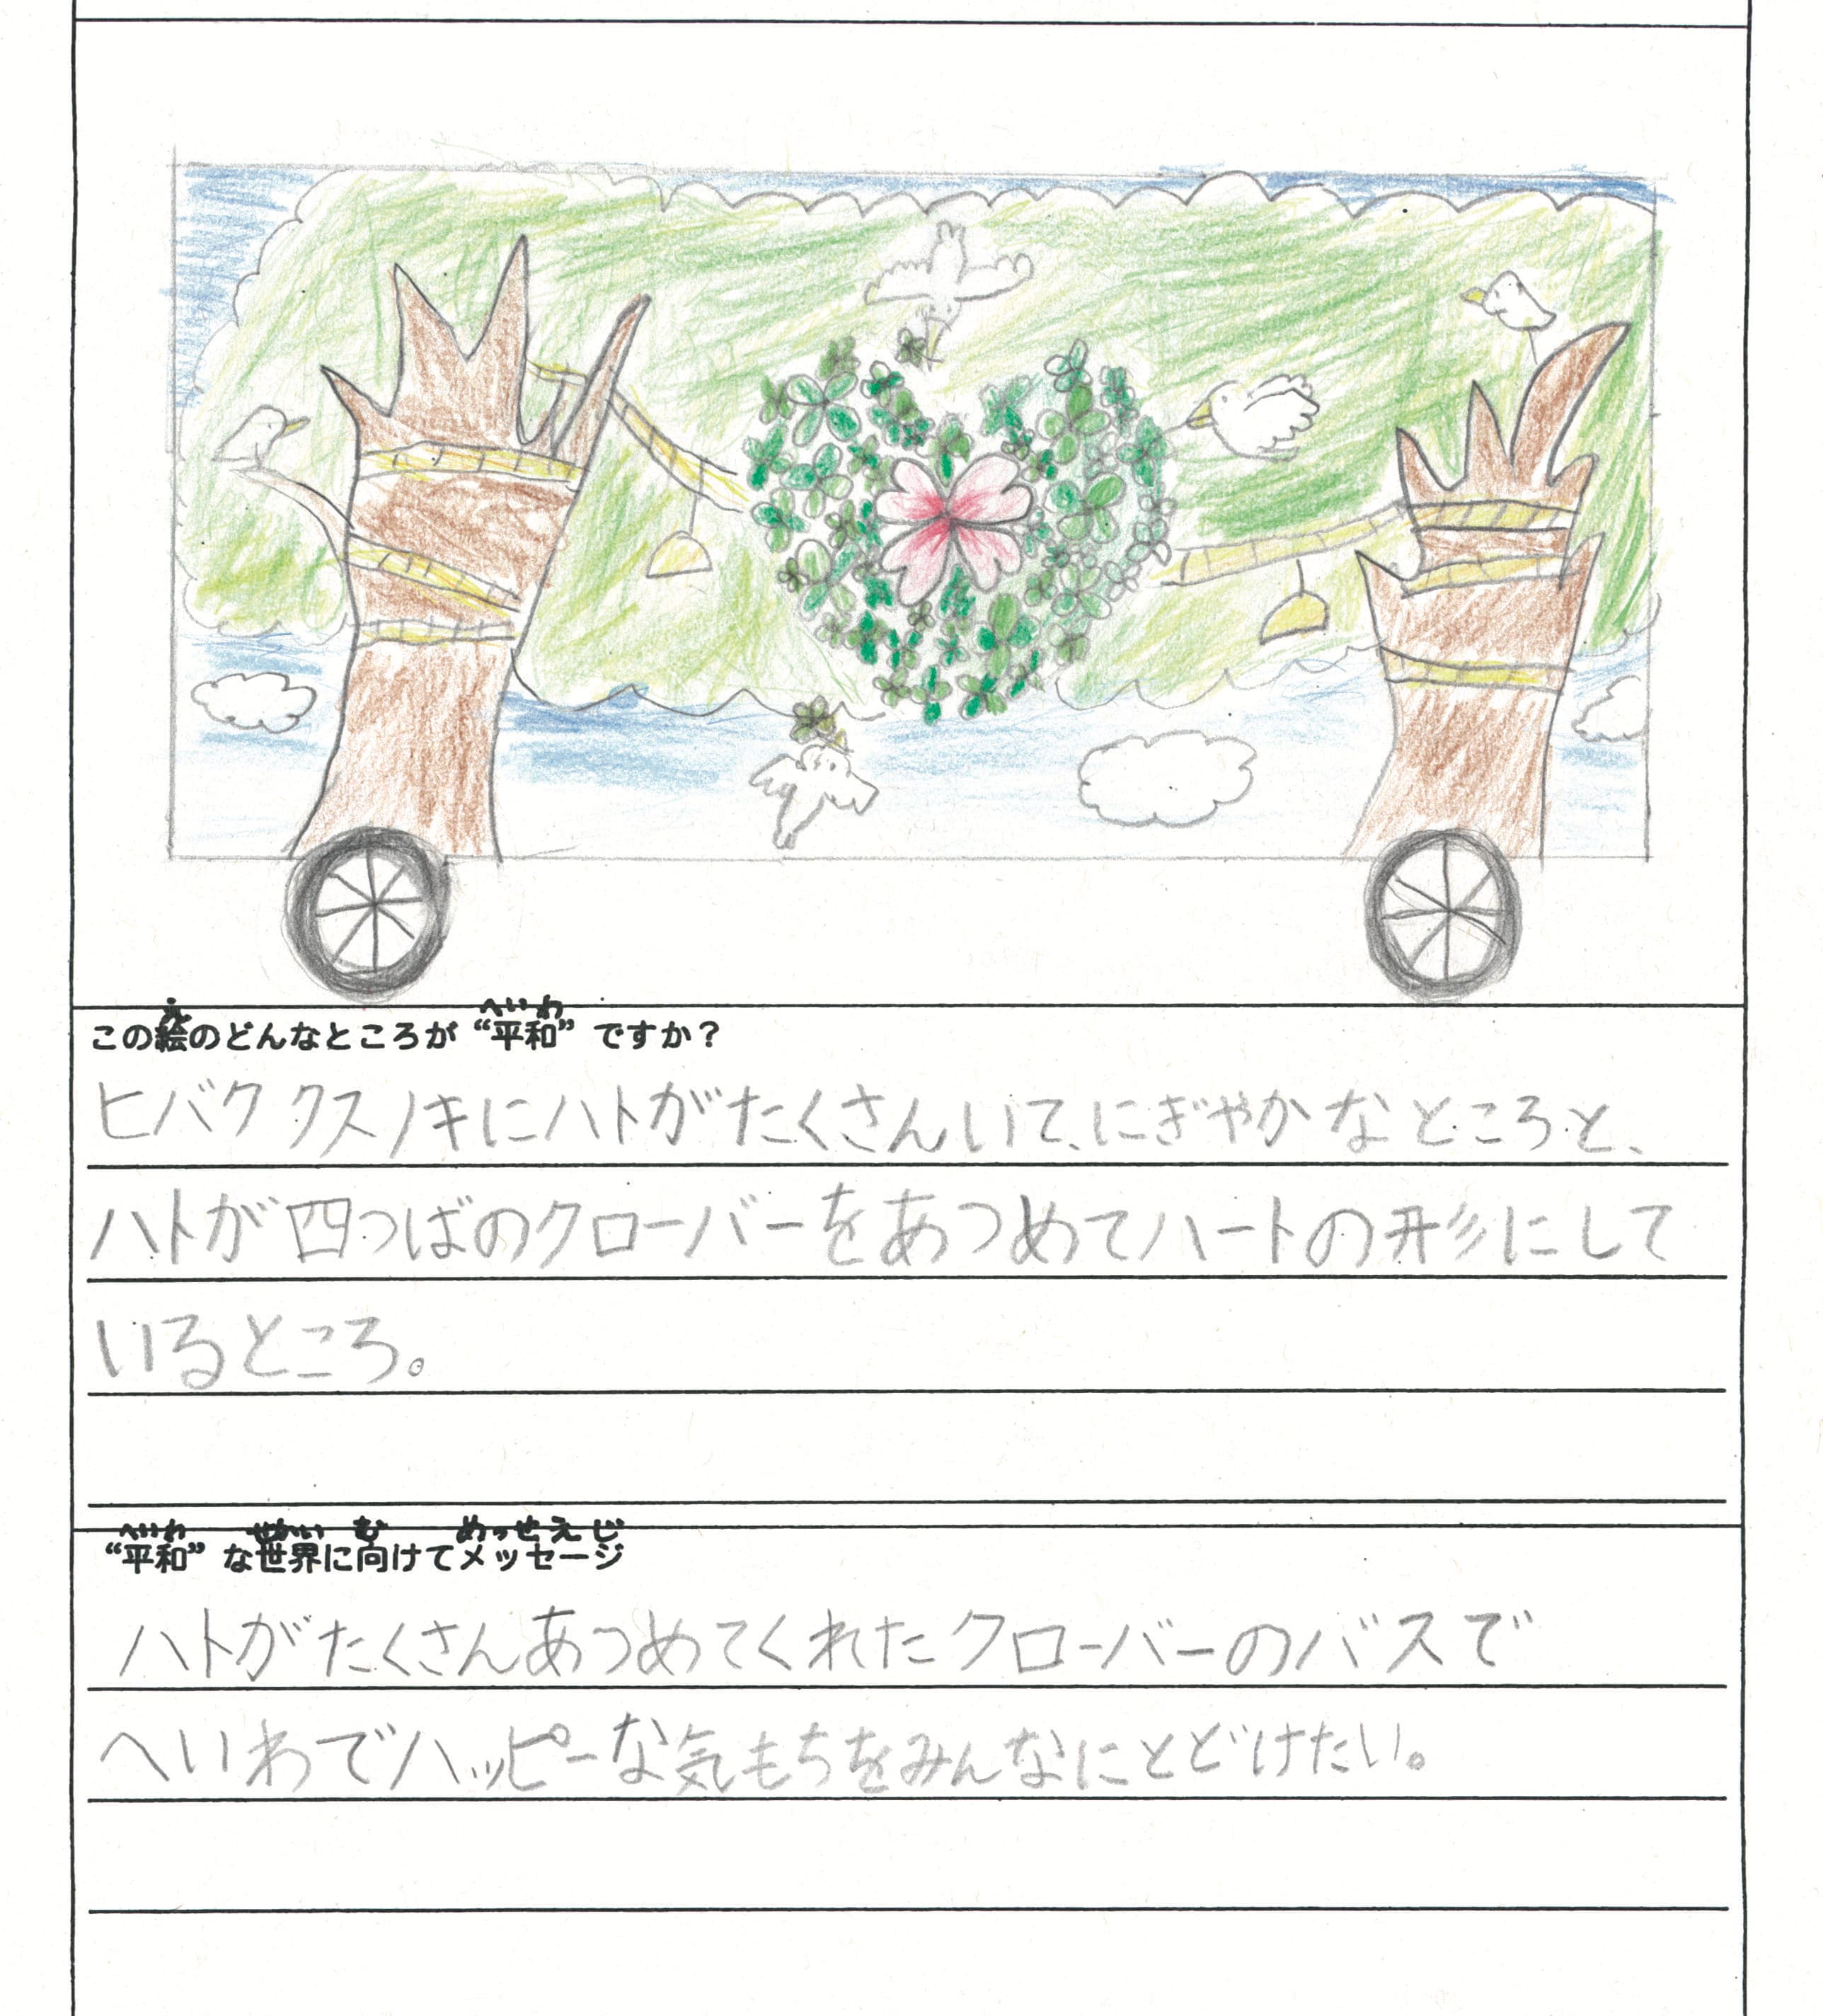 この絵のどんなところが“平和”ですか?
ヒバククスノキにハトがたくさんいて、にぎやかなところと、
ハトが四つばのクローバーをあつめてハートの形にして
いるところ。
“平和”な世界に向けてメッセージ
ハトがたくさんあつめてくれたクローバーのバスで
へいわでハッピーな気もちをみんなにとどけたい。